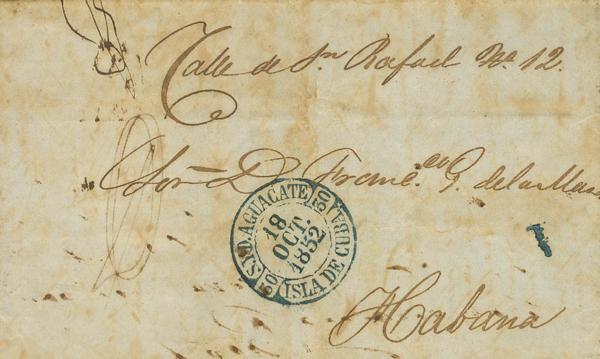 Calle de Sn Rafael No. 12.
Sor. D. Franco. G. de la Maza
S.Y.D. AGUACATE
30
18
OCT.
1852
30
ISLA DE CUBA
Habana